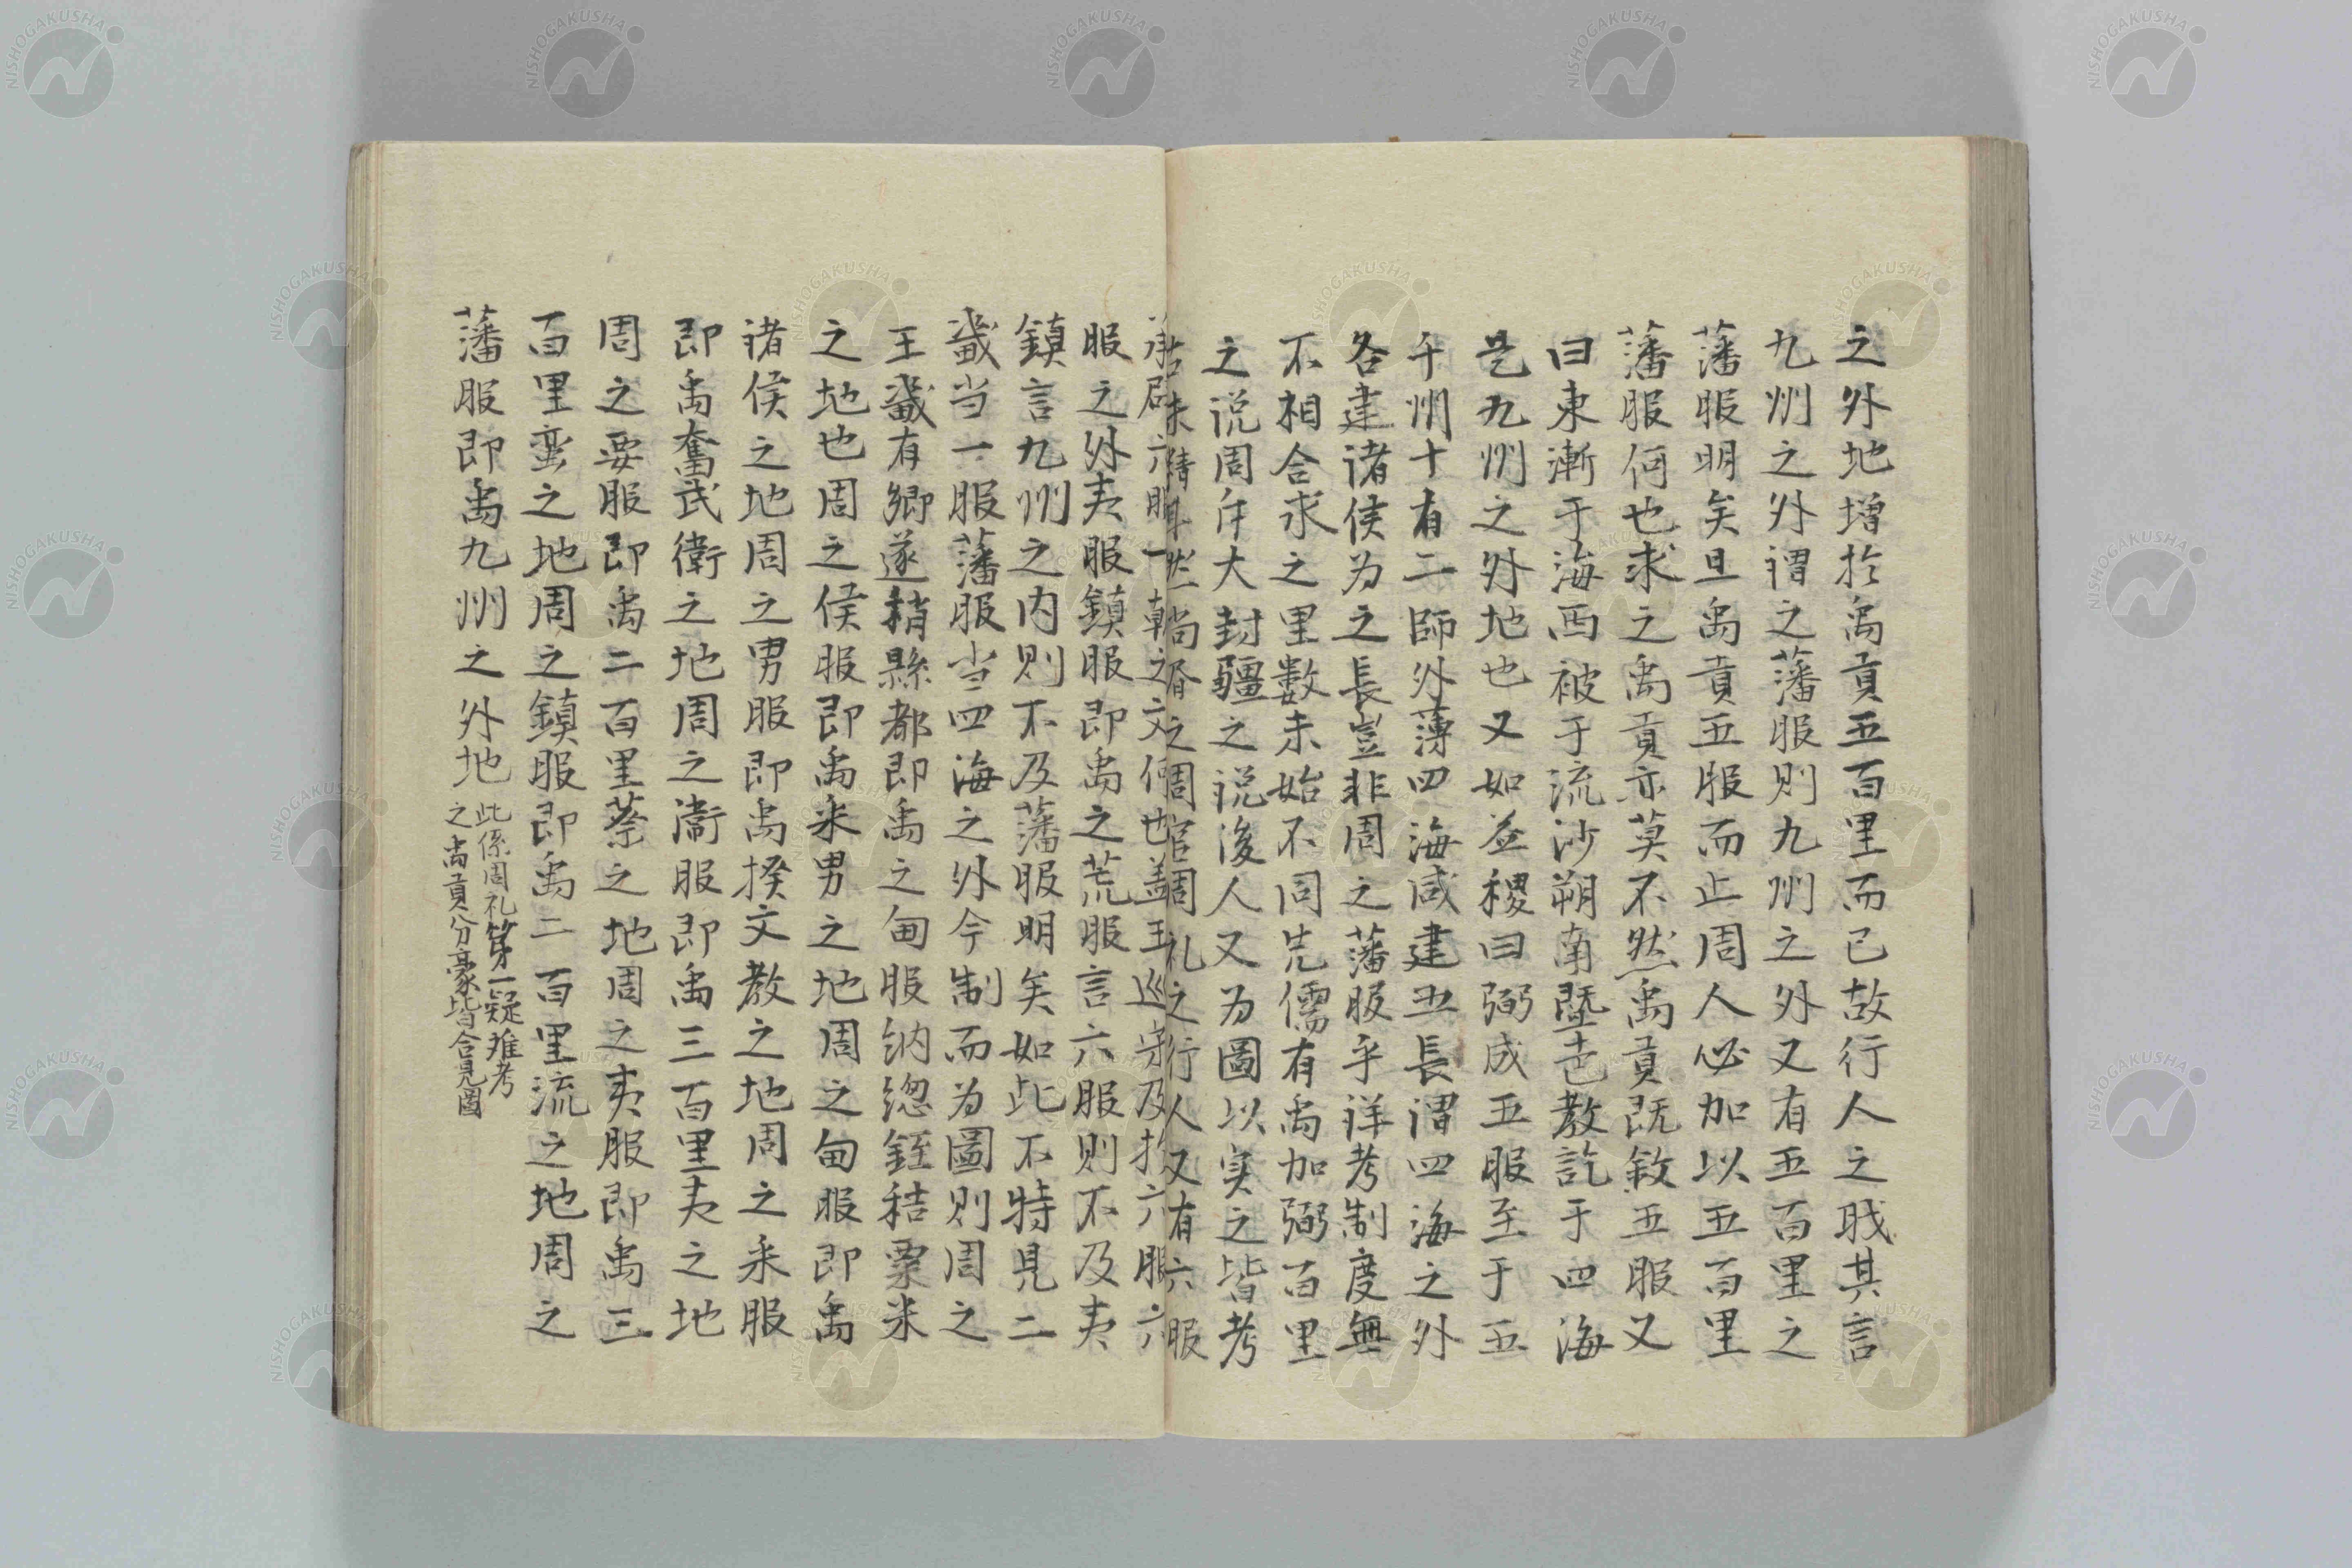 之外地增於禹貢五百里而已故行人之職其言
九州之外謂之藩服則九州之外又有五百里之
藩服明矣且禹貢五服而止周人必加以五百里
藩服何也求之禹貢亦莫不然禹貢既敘五服又
曰東漸于海西被于流沙朔南曁声教訖于四海
是九州之外地也又如益稷曰弼成五服至于五
千州十有二師外薄四海咸建五長謂四海之外
各建诸侯为之長豈非周之藩服乎详考制度無
不相合求之里数未始不同先儒有禹加弼百里
之说周斥大封疆之说後人又为圖以实之皆考
古未精耳然尚之周官周礼之行人又有六服
承辟六服一朝之文何也盖王巡守及於六服六
服之外夷服鎮服即禹之荒服言六服則不及夷
鎮言九州之内则不及藩服明矣如此不特見二
畿当一服藩服当四海之外今制而为圖则周之
王畿有鄉遂稍縣都即禹之甸服纳緫銍秸粟米
之地也周之侯服即禹采男之地周之甸服即禹
诸侯之地周之男服即禹揆文教之地周之采服
即禹奮武衛之地周之衛服即禹三百里夷之地
周之要服即禹二百里蔡之地周之夷服即禹三
百里蛮之地周之鎮服即禹二百里流之地周之
藩服即禹九州之外地
此係周礼第一疑难考
之禹貢分豪皆合見圖
NISHOGAKUSHA